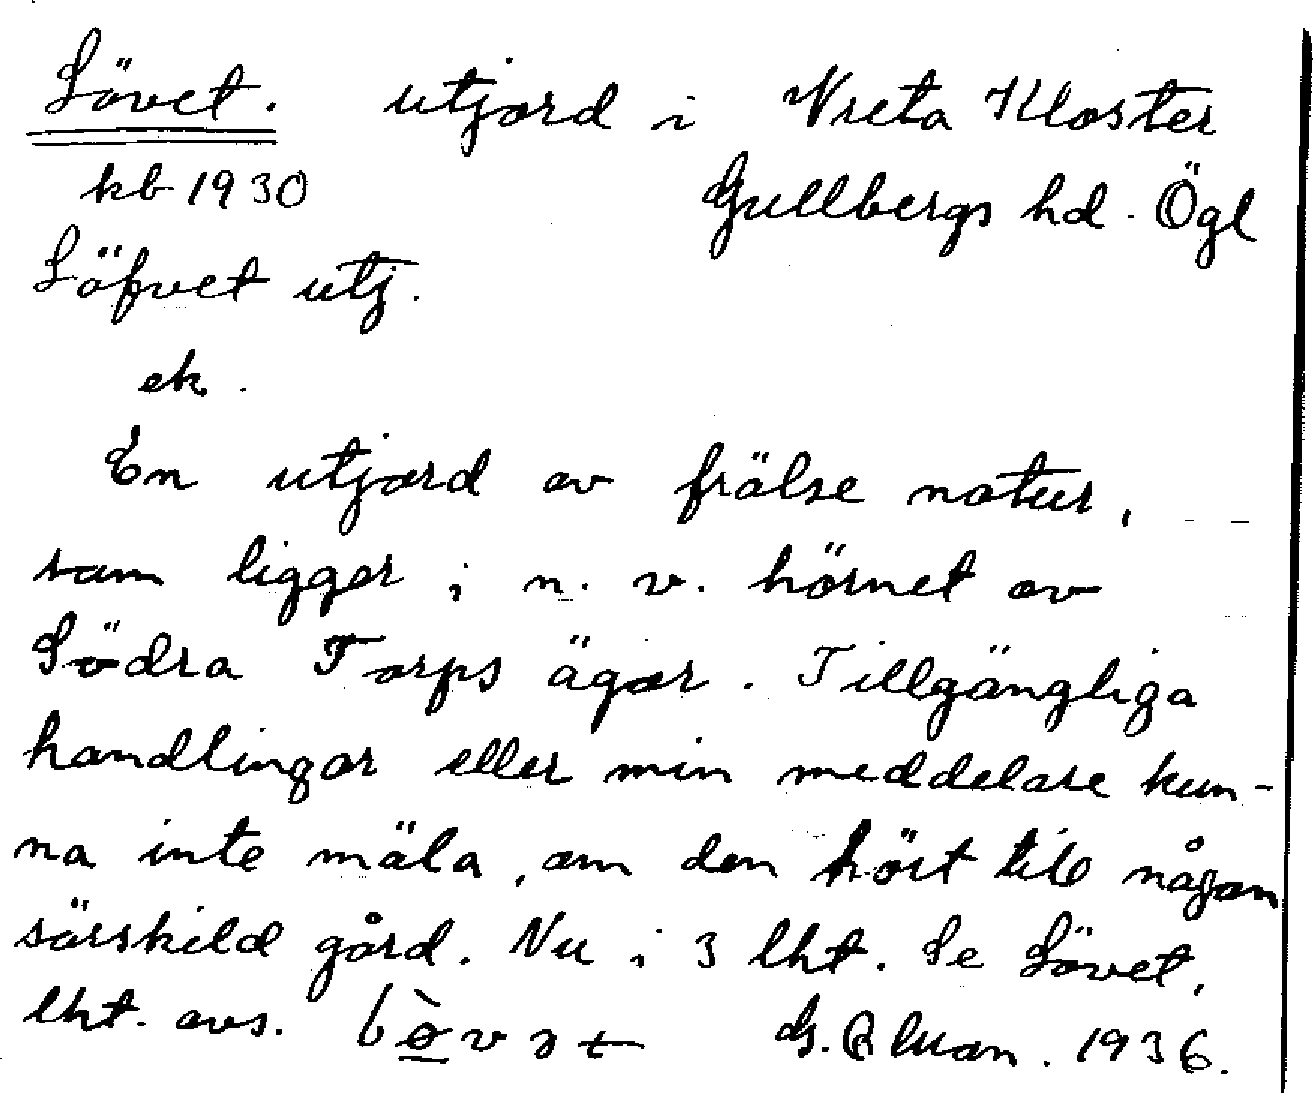 Lövet. utjord i Vreta Kloster
kb 1930 Gullbergs hd. Ögl
Löfvet utj.
ek.
En utjord av frälse natur,
som ligger i n. v. hörnet av
Södra Torps ägor. Tillgängliga
handlingar eller min meddelare kun-
na inte mäla, om den hört till någon
särskild gård. Nu i 3 lht. Se Lövet,
lht. avs. G. 1936.